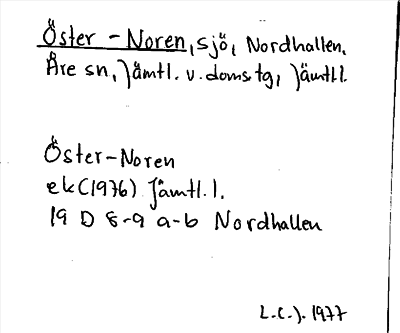 Öster - Noren, sjö, Nordhallen,
Åre sn, Jämtl. v. doms.tg, Jämtl.l.
Öster-Noren
ek (1976) Jämtl. l.
19 D 8-9 a-b Nordhallen
L.C.J. 1977